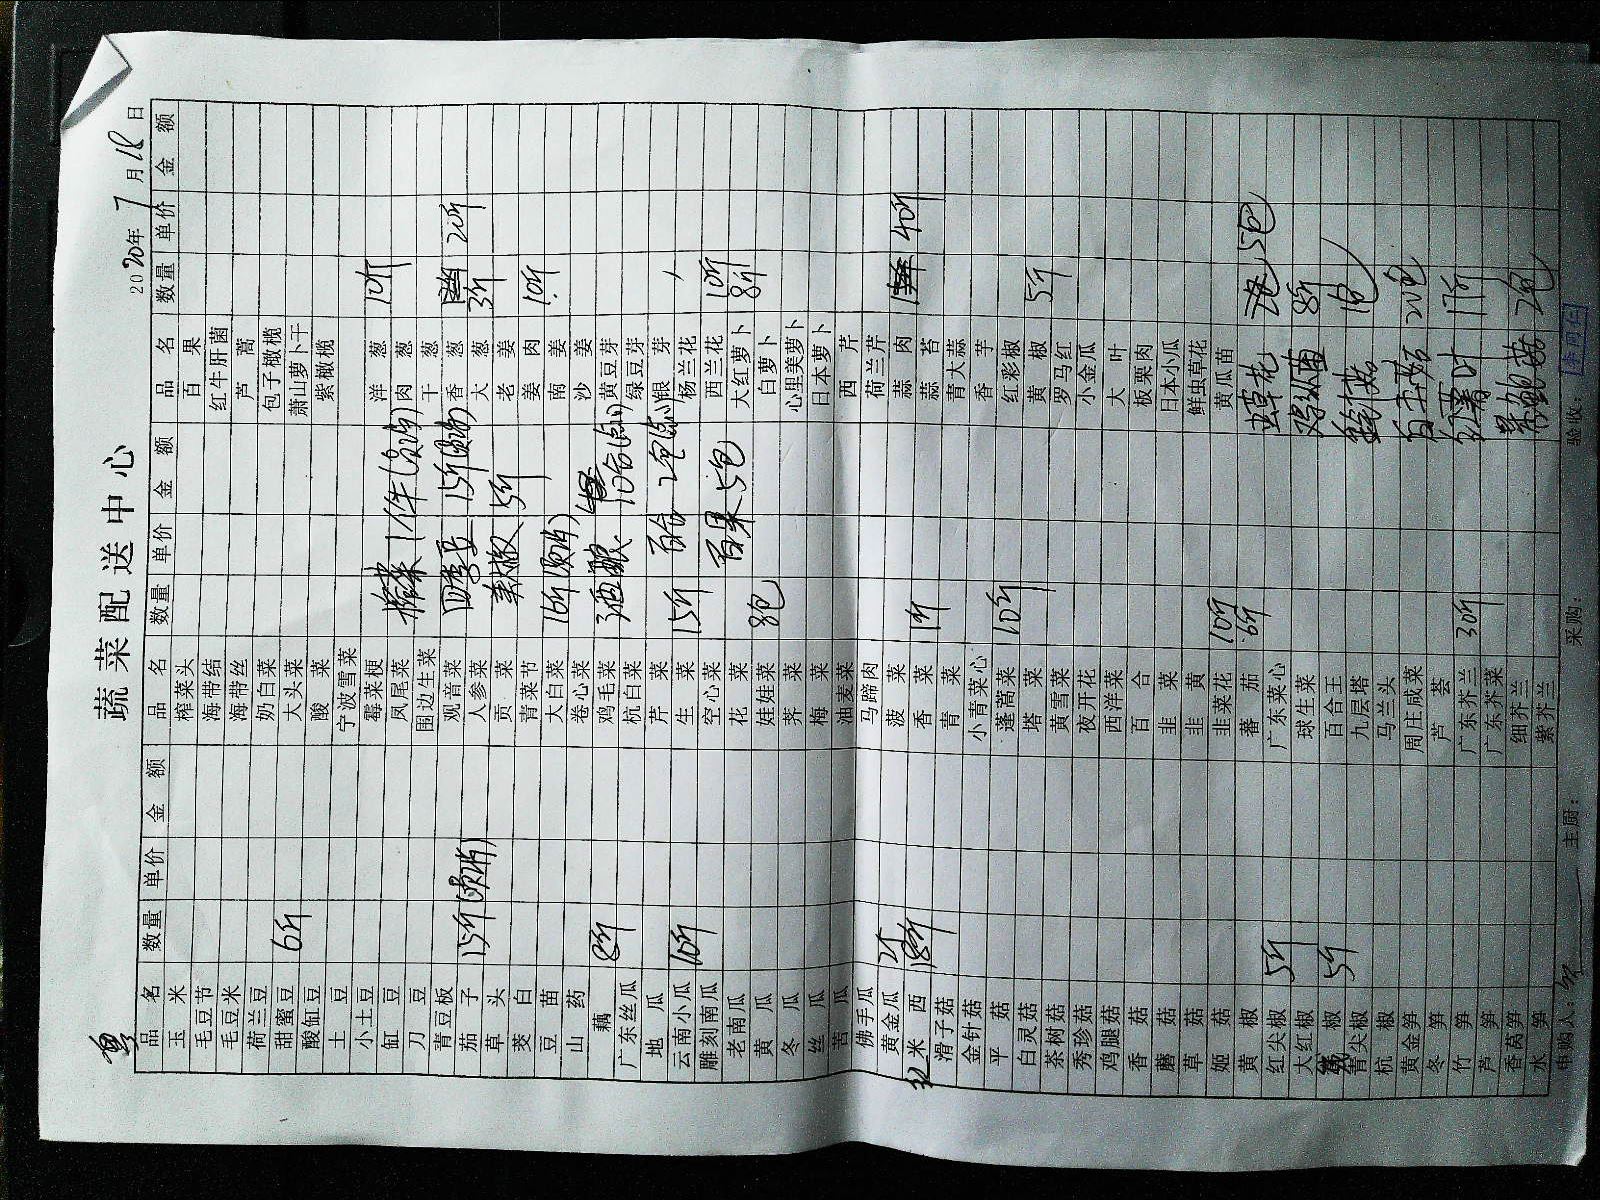 蔬菜配送中心
2020年7月18日
品名 数量 单价 金额 品名 数量 单价 金额 品名 数量 单价 金额
玉米 榨菜头 百果
毛豆节 海带结 红牛肝菌
毛豆米 海带丝 芦蒿
荷兰豆 奶白菜 包子橄榄
甜蜜豆 6斤 大头菜 萧山萝卜干
酸缸豆 酸菜 紫橄榄
土豆 宁波雪菜
小土豆 霉菜梗 洋葱 10斤
缸豆 凤尾菜 肉葱
刀豆 围边生菜 干葱
青豆板 观音菜 香葱 2斤
茄子 15斤 人参菜 大葱 3斤
草头 贡菜 老姜
茭白 青菜节 姜肉 10斤
豆苗 大白菜 16斤 南姜
山药 卷心菜 沙姜
藕 8斤 鸡毛菜 黄豆芽
广东丝瓜 杭白菜 绿豆芽
地瓜 芹菜 银芽
云南小瓜 10斤 生菜 15斤 杨兰花
雕刻南瓜 空心菜 西兰花 10斤
老南瓜 花菜 大红萝卜 8斤
黄瓜 娃娃菜 8包 白萝卜
冬瓜 荠菜 心里美萝卜
丝瓜 梅菜 日本萝卜
苦瓜 油麦菜 西芹
佛手瓜 马蹄肉 荷兰芹
黄金瓜 2斤 菠菜 蒜肉 40斤
红米西 18斤 香菜 1斤 蒜苔
滑子菇 青菜 青大蒜
金针菇 小青菜心 香芋
平菇 蓬蒿菜 10斤 红彩椒
白灵菇 塔菜 黄椒 5斤
茶树菇 黄雪菜 罗马红
秀珍菇 夜开花 小金瓜
鸡腿菇 西洋菜 大叶
香菇 百合 板栗肉
蘑菇 韭菜 日本小瓜
草菇 韭黄 鲜虫草花
姬菇 韭菜花 10斤 黄瓜苗
黄椒 蕃茄 6斤 虫草花 5包
红尖椒 5斤 广东菜心
大红椒 球生菜 8斤
椒 5斤 百合王 1包
青尖椒 九层塔
杭椒 马兰头
黄金笋 周庄咸菜 白玉菇 20包
冬笋 芦荟
竹笋 广东芥兰 30斤 红薯叶 17斤
芦笋 广东芥菜
香莴笋 细芥兰 2包
水笋 紫芥兰
四季豆 15斤
美人椒 5斤
酒酿
百合 2包
百果 5包
申购人： 主厨： 采购： 验收：